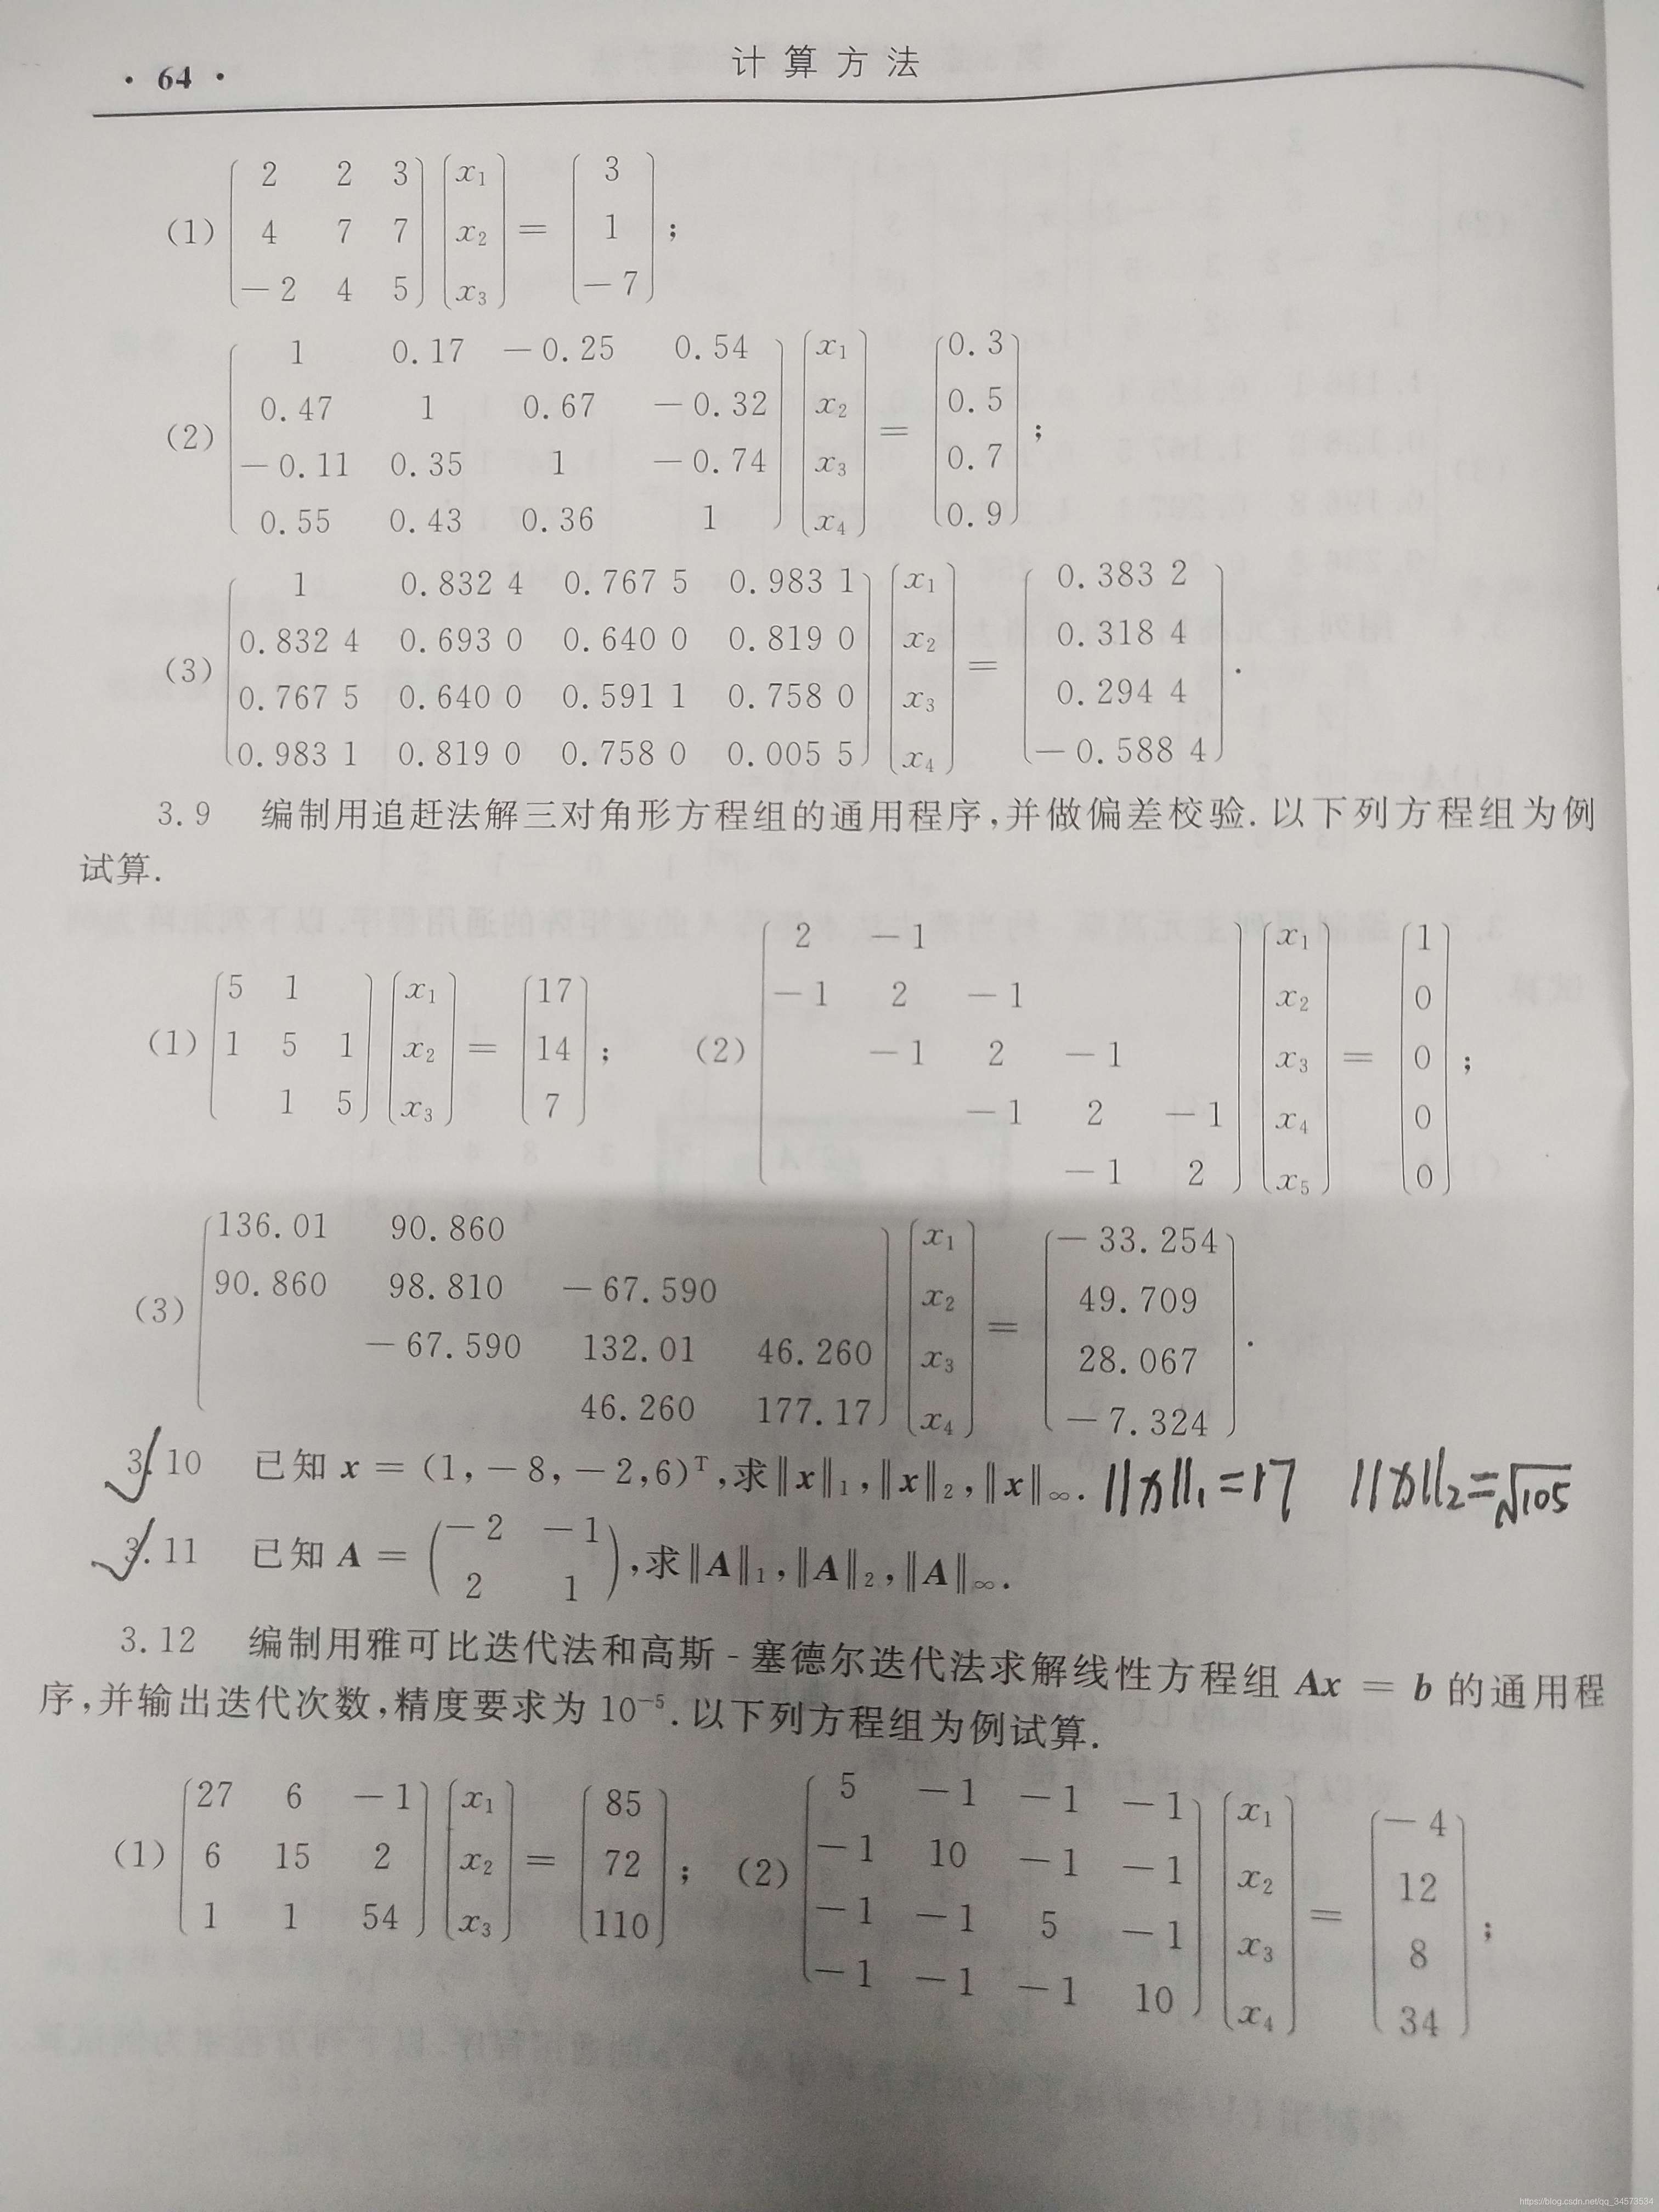 · 64 ·
计算方法
(1) (2 2 3; 4 7 7; -2 4 5) (x₁; x₂; x₃) = (3; 1; -7);
(2) (1 0.17 -0.25 0.54; 0.47 1 0.67 -0.32; -0.11 0.35 1 -0.74; 0.55 0.43 0.36 1) (x₁; x₂; x₃; x₄) = (0.3; 0.5; 0.7; 0.9);
(3) (1 0.832 4 0.767 5 0.983 1; 0.832 4 0.693 0 0.640 0 0.819 0; 0.767 5 0.640 0 0.591 1 0.758 0; 0.983 1 0.819 0 0.758 0 0.005 5) (x₁; x₂; x₃; x₄) = (0.383 2; 0.318 4; 0.294 4; -0.588 4).
3.9 编制用追赶法解三对角形方程组的通用程序,并做偏差校验.以下列方程组为例
试算.
(1) (5 1; 1 5 1; 1 5) (x₁; x₂; x₃) = (17; 14; 7); (2) (2 -1; -1 2 -1; -1 2 -1; -1 2 -1; -1 2) (x₁; x₂; x₃; x₄; x₅) = (1; 0; 0; 0; 0);
(3) (136.01 90.860; 90.860 98.810 -67.590; -67.590 132.01 46.260; 46.260 177.17) (x₁; x₂; x₃; x₄) = (-33.254; 49.709; 28.067; -7.324).
3.10 已知 x = (1,-8,-2,6)ᵀ,求‖x‖₁,‖x‖₂,‖x‖∞. ‖x‖₁=17 ‖x‖₂=√105
3.11 已知 A = (-2 -1; 2 1),求‖A‖₁,‖A‖₂,‖A‖∞.
3.12 编制用雅可比迭代法和高斯-塞德尔迭代法求解线性方程组 Ax = b 的通用程
序,并输出迭代次数,精度要求为 10⁻⁵.以下列方程组为例试算.
(1) (27 6 -1; 6 15 2; 1 1 54) (x₁; x₂; x₃) = (85; 72; 110); (2) (5 -1 -1 -1; -1 10 -1 -1; -1 -1 5 -1; -1 -1 -1 10) (x₁; x₂; x₃; x₄) = (-4; 12; 8; 34);
https://blog.csdn.net/qq_34573534